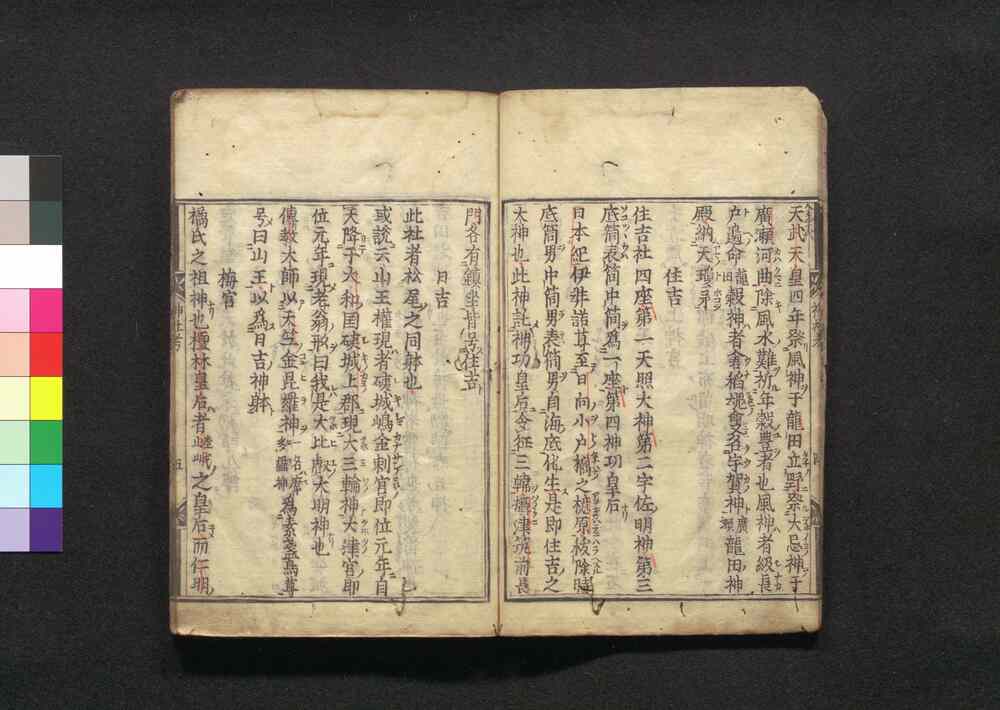 天武天皇四年祭風神于龍田立野祭大忌神于
廣瀬河曲除風水難祈年穀豊者也風神者級長
戸邉命龍田穀神者倉稲魂命又名宇賀神廣瀬龍田神
殿納天瓊矛
住吉
住吉社四座第一天照大神第二宇佐明神第三
底筒表筒中筒為一座第四神功皇后
日本紀伊弉諾尊至日向小戸橘之檍原祓除時
底筒男中筒男表筒男自海底化生是即住吉之
大神也此神託神功皇后令征三韓攝津筑前長
門各有鎮坐皆号住吉
日吉
此社者松尾之同躰也
或說云山王權現者磯城嶋金刺宮即位元年自
天降于大和国磯城上郡現大三輪神大津宮即
位元年現老翁形曰我是大比叡大明神也
傳教大師以天竺金毘羅神一名摩多羅神為素盞烏尊
号曰山王以為日吉神躰
梅宮
橘氏之祖神也檀林皇后者嵯峨之皇后而仁明
神社考
五